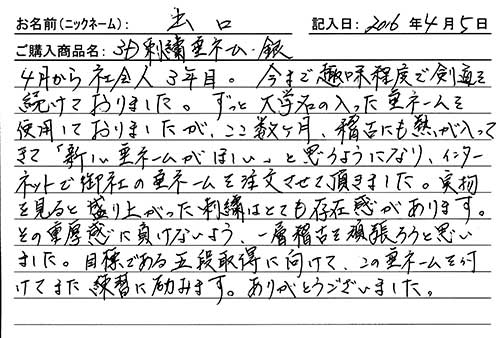 お名前(ニックネーム): 出口 記入日: 2016 年 4 月 5 日
ご購入商品名: 3D刺繍垂ネーム・銀
4月から社会人3年目。今まで趣味程度で剣道を
続けておりました。ずっと大学名の入った垂ネームを
使用しておりましたが、ここ数ヶ月、稽古にも熱が入って
きて「新しい垂ネームがほしい」と思うようになり、インター
ネットで御社の垂ネームを注文させて頂きました。実物
を見ると盛り上がった刺繍はとても存在感があります。
その重厚感に負けないよう、一層稽古を頑張ろうと思い
ました。目標である五段取得に向けて、この垂ネームを付
けてまた練習に励みます。ありがとうございました。